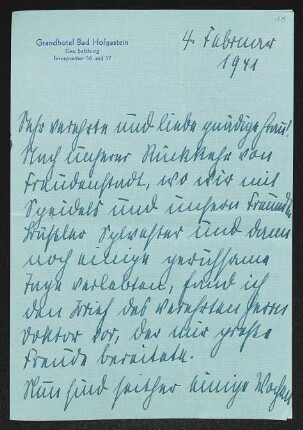 18
Grandhotel Bad Hofgastein
Gau Salzburg
Fernsprecher 56 und 57
4. Februar
1941
Sehr verehrte und liebe gnädige Frau!
Nach unserer Rückkehr von
Freudenstadt, wo wir mit
Speidels und unsern Freunden
Sylvester und dann
noch einige geruhsame
Tage verlebten, fand ich
den Brief des verehrten Herrn
Doktor vor, der mir große
Freude bereitete.
Nun sind seither einige Wochen